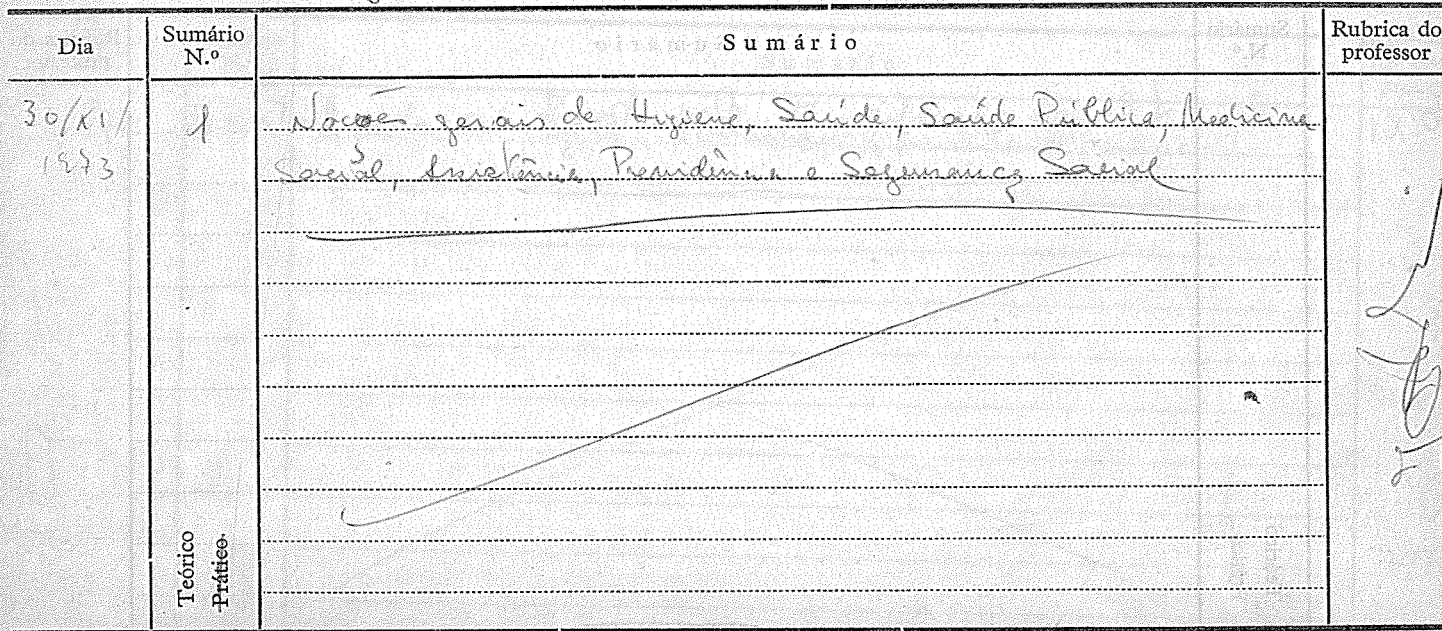 Dia
Sumário
N.º
Sumário
Rubrica do
professor
30/XI/
1973
1
Nocões gerais de Hygiene, Saúde, Saúde Pública, Medicina
Social, Assistência, Previdência e Segurança Social
Teórico
Prático